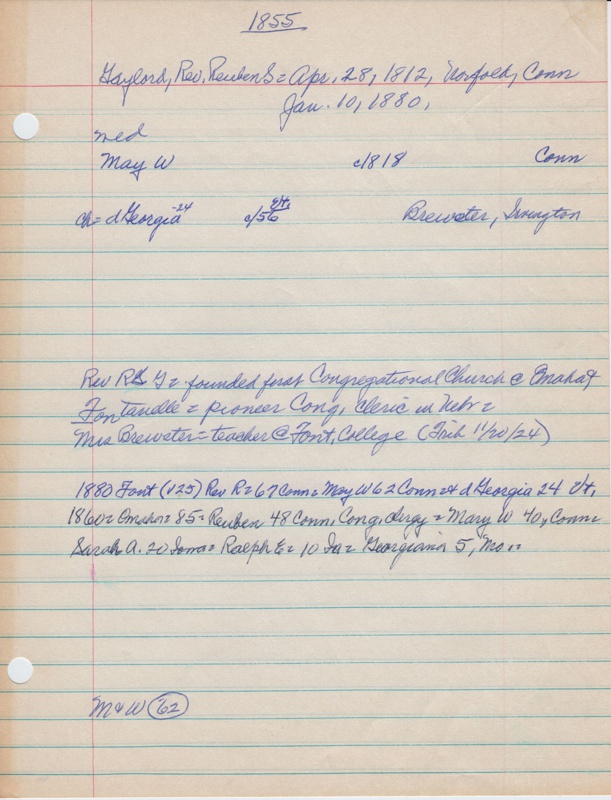 1855
Gaylord, Rev. Reuben S = Apr. 28, 1812, Norfolk, Conn
Jan. 10, 1880,
med
May W c/818 Conn
ch = d Georgia -24 c/56 Vt, Brewster, Irvington
Rev R G = founded first Congregational Church @ Omaha &
Fontanelle = pioneer Cong. cleric in Nebr =
Mrs Brewster = teacher @ Font, College (Trib 11/20/24)
1880 Font (v25) Rev R = 67 Conn = May W 62 Conn = & d Georgia 24 Vt,
1860 = Omaha = 85 = Reuben 48 Conn, Cong, clergy = Mary W 40, Conn =
Sarah A. 20 Iowa = Ralph E = 10 Ia = Georgiana 5, Mo =
M & W '62